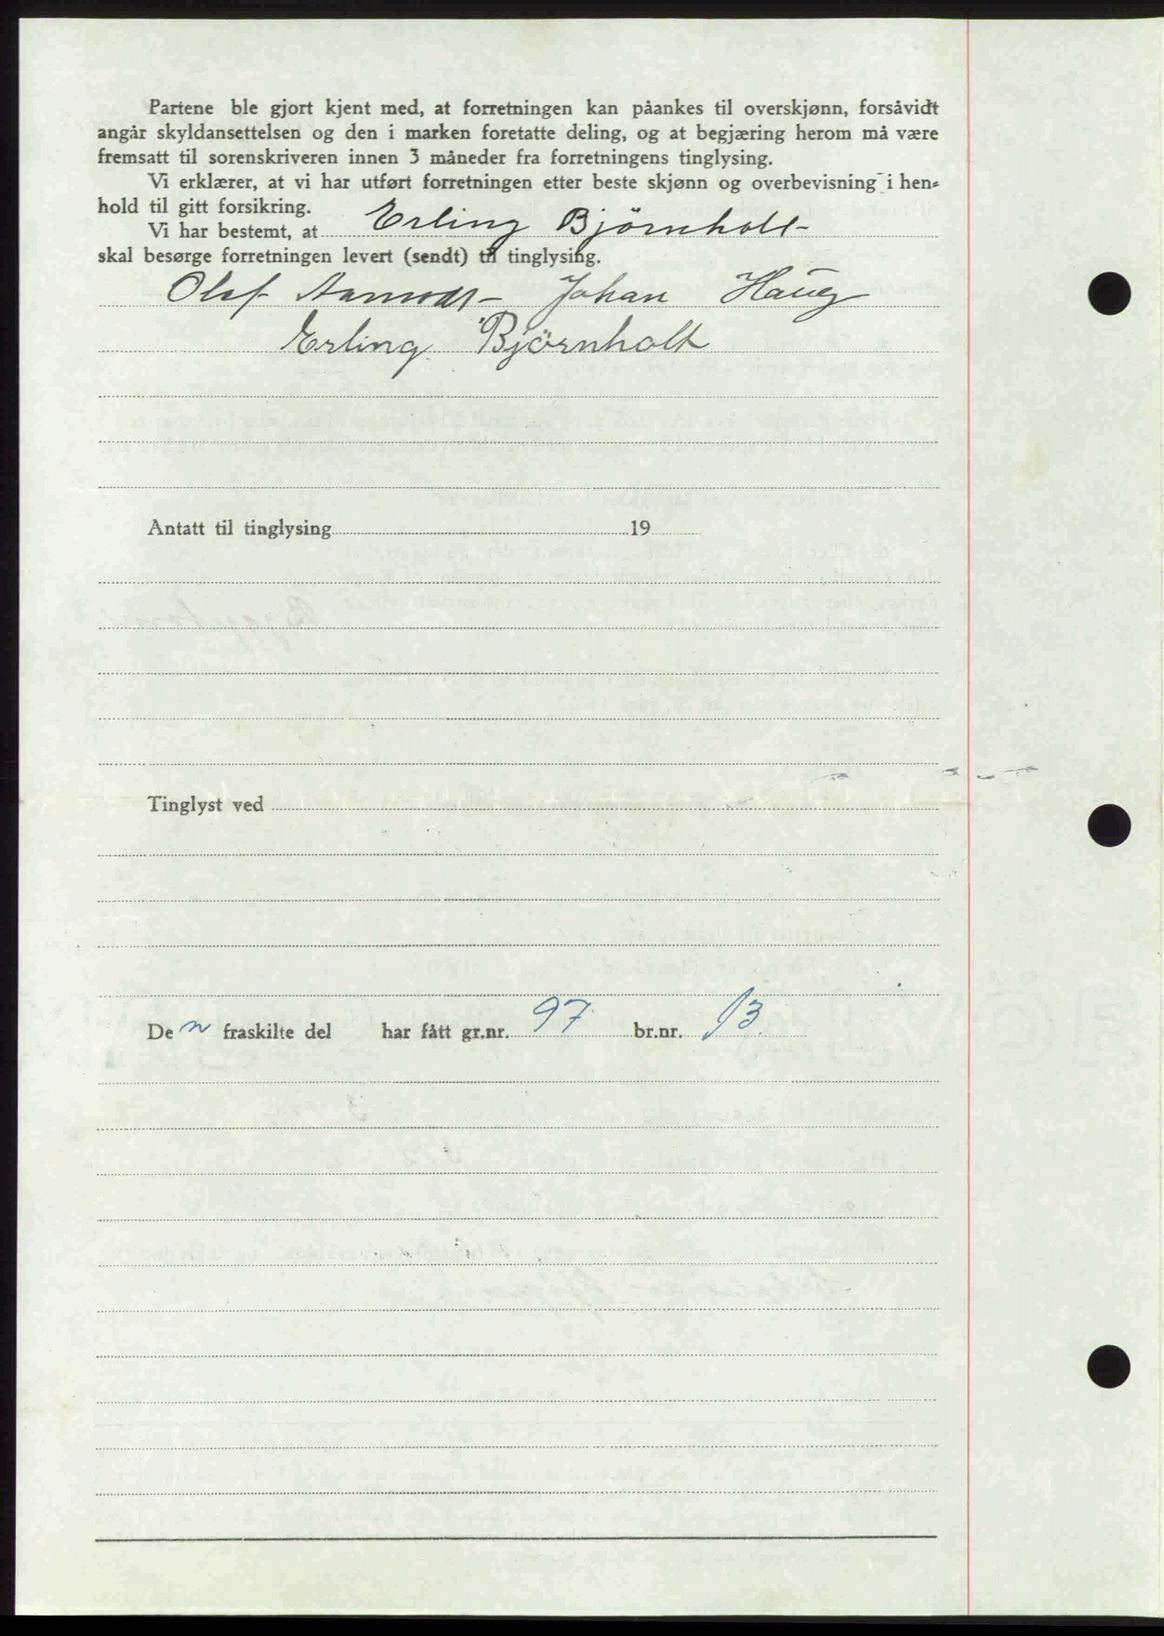 Partene ble gjort kjent med, at forretningen kan påankes til overskjønn, forsåvidt
angår skyldansettelsen og den i marken foretatte deling, og at begjæring herom må være
fremsatt til sorenskriveren innen 3 måneder fra forretningens tinglysing.
Vi erklærer, at vi har utført forretningen etter beste skjønn og overbevisning i hen-
hold til gitt forsikring.
Vi har bestemt, at Erling Bjørnholt
skal besørge forretningen levert (sendt) til tinglysing.
Olaf Johan Haug
Erling Bjørnholt
Antatt til tinglysing 19
Tinglyst ved
De n fraskilte del har fått gr.nr. 97 br.nr. 13